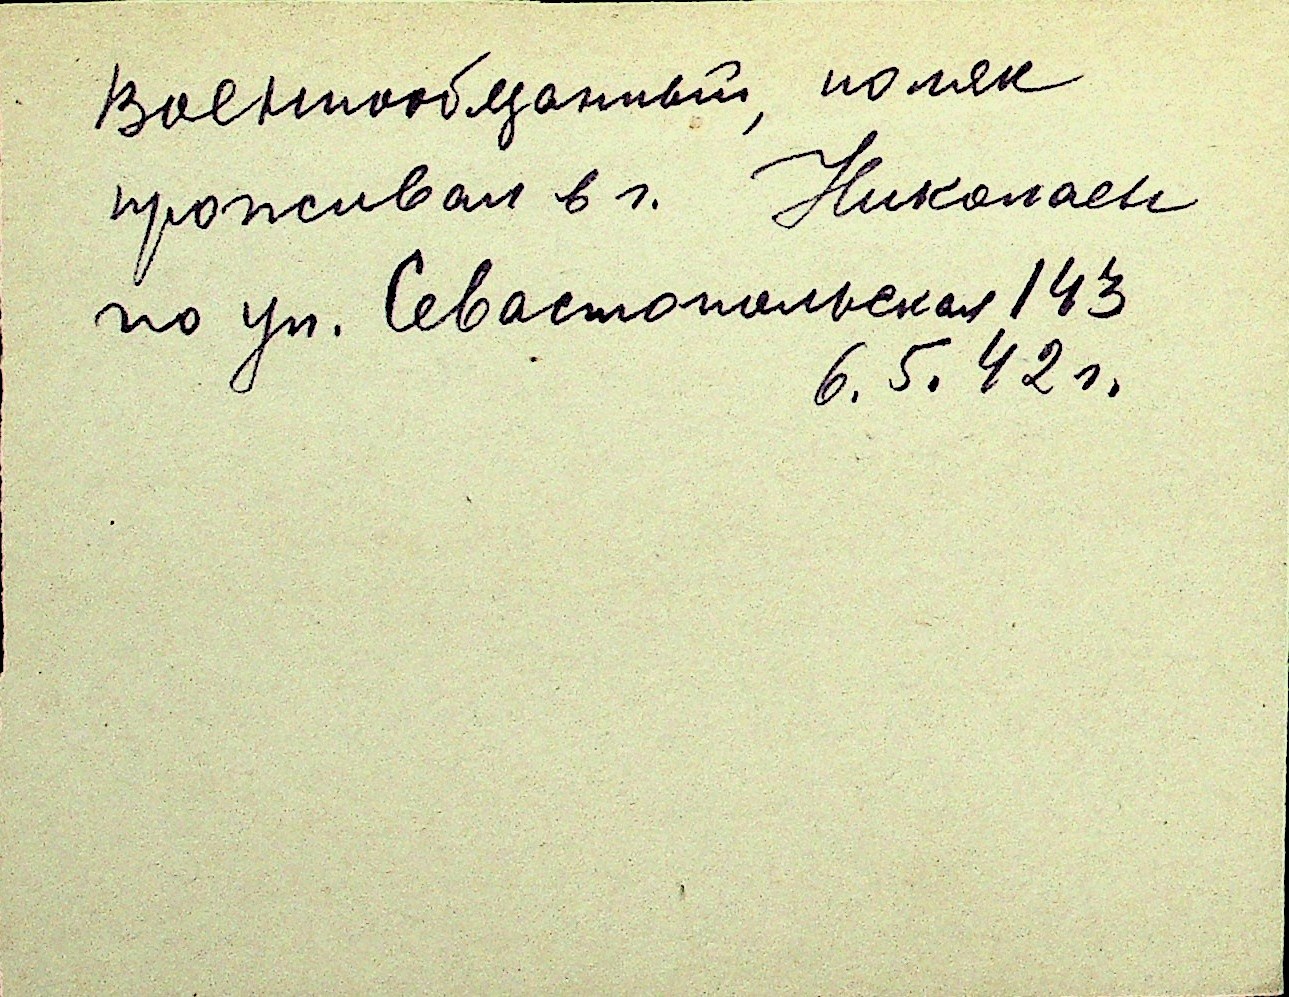 Военнообязанный, поляк
проживал в г. Николаев
по ул. Севастопольская 143
6. 5. 42 г.